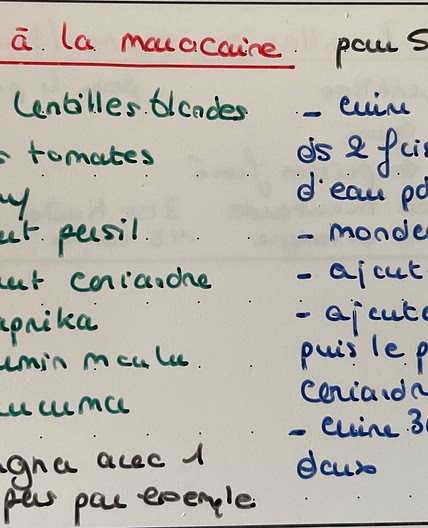 à la marocaine pour 5
Lentilles blondes
tomates
persil
coriandre
paprika
cumin moulu
curcuma
avec 1
par exemple
- cuire
ds 2 fois
d'eau
- monder
- ajout
- ajoute
puis le p
coriandr
- cuire 30
doux